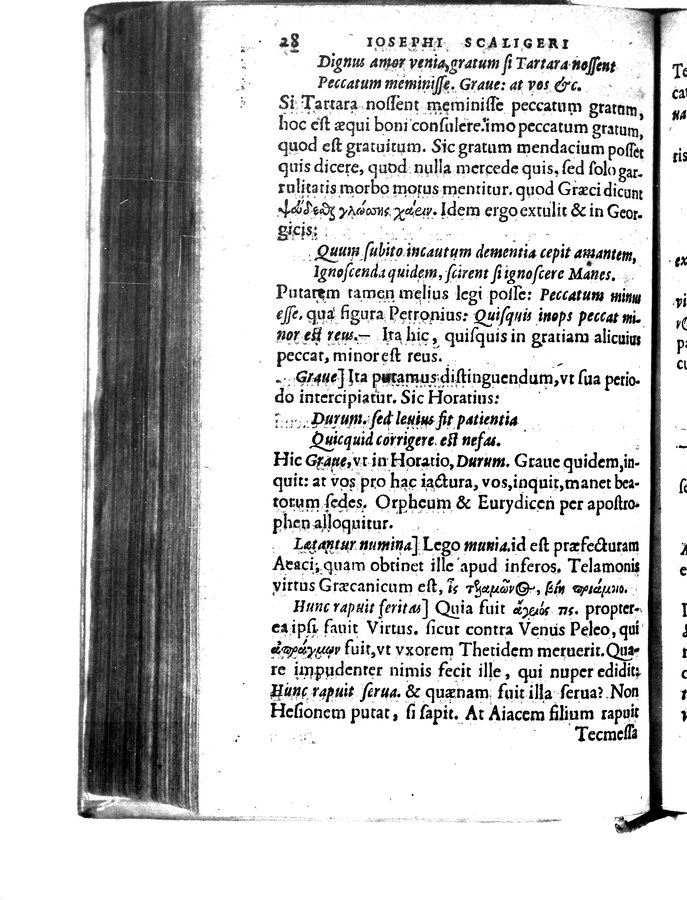 28 IOSEPHI SCALIGERI
Dignus amor venia, gratum si Tartara nossent
Peccatum meminisse. Graue: at vos &c.
Si Tartara nossent meminisse peccatum gratum,
hoc est æqui boni consulere. imo peccatum gratum,
quod est gratuitum. Sic gratum mendacium posset
quis dicere, quod nulla mercede quis, sed solo gar-
rulitatis morbo motus mentitur. quod Græci dicunt
γλώσσης Idem ergo extulit & in Geor-
gicis:
Quum subito incautum dementia cepit amantem,
Ignoscenda quidem, scirent si ignoscere Manes.
Putarem tamen melius legi posse: Peccatum minus
esse. qua figura Petronius: Quisquis inops peccat mi-
nor est reus.— Ita hic, quisquis in gratiam alicuius
peccat, minor est reus.
Graue] Ita putamus distinguendum, vt sua perio-
do intercipiatur. Sic Horatius:
Durum. sed leuius fit patientia
Quicquid corrigere est nefas.
Hic Graue, vt in Horatio, Durum. Graue quidem, in-
quit: at vos pro hac iactura, vos, inquit, manet bea-
torum sedes. Orpheum & Eurydicen per apostro-
phen alloquitur.
Lætantur numina] Lego munia. id est præfecturam
Aeaci; quam obtinet ille apud inferos. Telamonis
virtus Græcanicum est, ἲς βίη πριάμοιο.
Hunc rapuit feritas] Quia fuit propter-
ea ipsi fauit Virtus. sicut contra Venus Peleo, qui
ἀπράγμων fuit, vt vxorem Thetidem meruerit. Qua-
re impudenter nimis fecit ille, qui nuper edidit:
Hunc rapuit serua. & quænam fuit illa serua? Non
Hesionem putat, si sapit. At Aiacem filium rapuit
Tecmessa